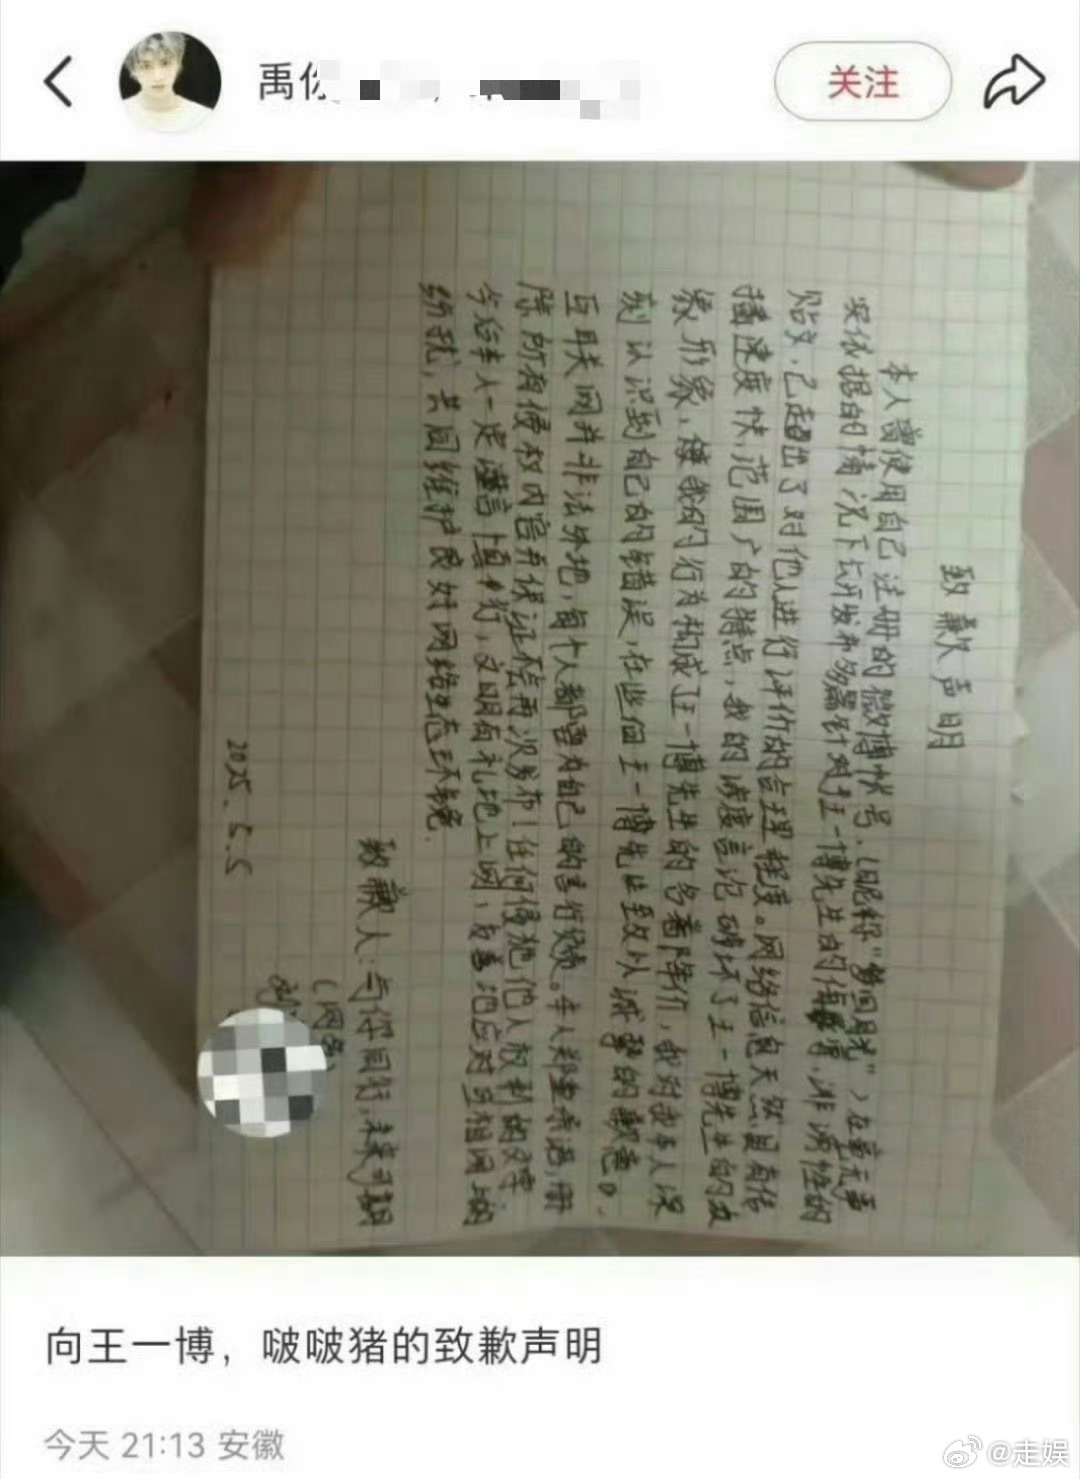 禹
关注
致歉声明
本人曾使用自己注册的微博帐号.(昵称"梦回月光")在毫无事
实依据的情况下公开发布多篇针对王一博先生的侮辱,诽谤性的
贴文,已超出了对他人进行评价的合理程度。网络信息天然具有传
播速度快,范围广的特点,我的言论破坏了王一博先生的
形象,我的行为构成了王一博先生的降低,我对此本人深
刻认识到自己的错误,在此向王一博先生致以诚挚的歉意。
互联网并非法外地,每个人都要为自己的言行负责。本人郑重承诺,删
除所有侵权内容并保证不会再次发布!任何侵犯他人权利的文字
今后本人一定谨言慎行,文明有礼地上网,友善地应对互相网上的
纷扰,共同维护良好网络生态环境.
致歉人:与你同行,未来可期
(网名)
2025.5.5
向王一博，啵啵猪的致歉声明
今天 21:13 安徽
@走娱